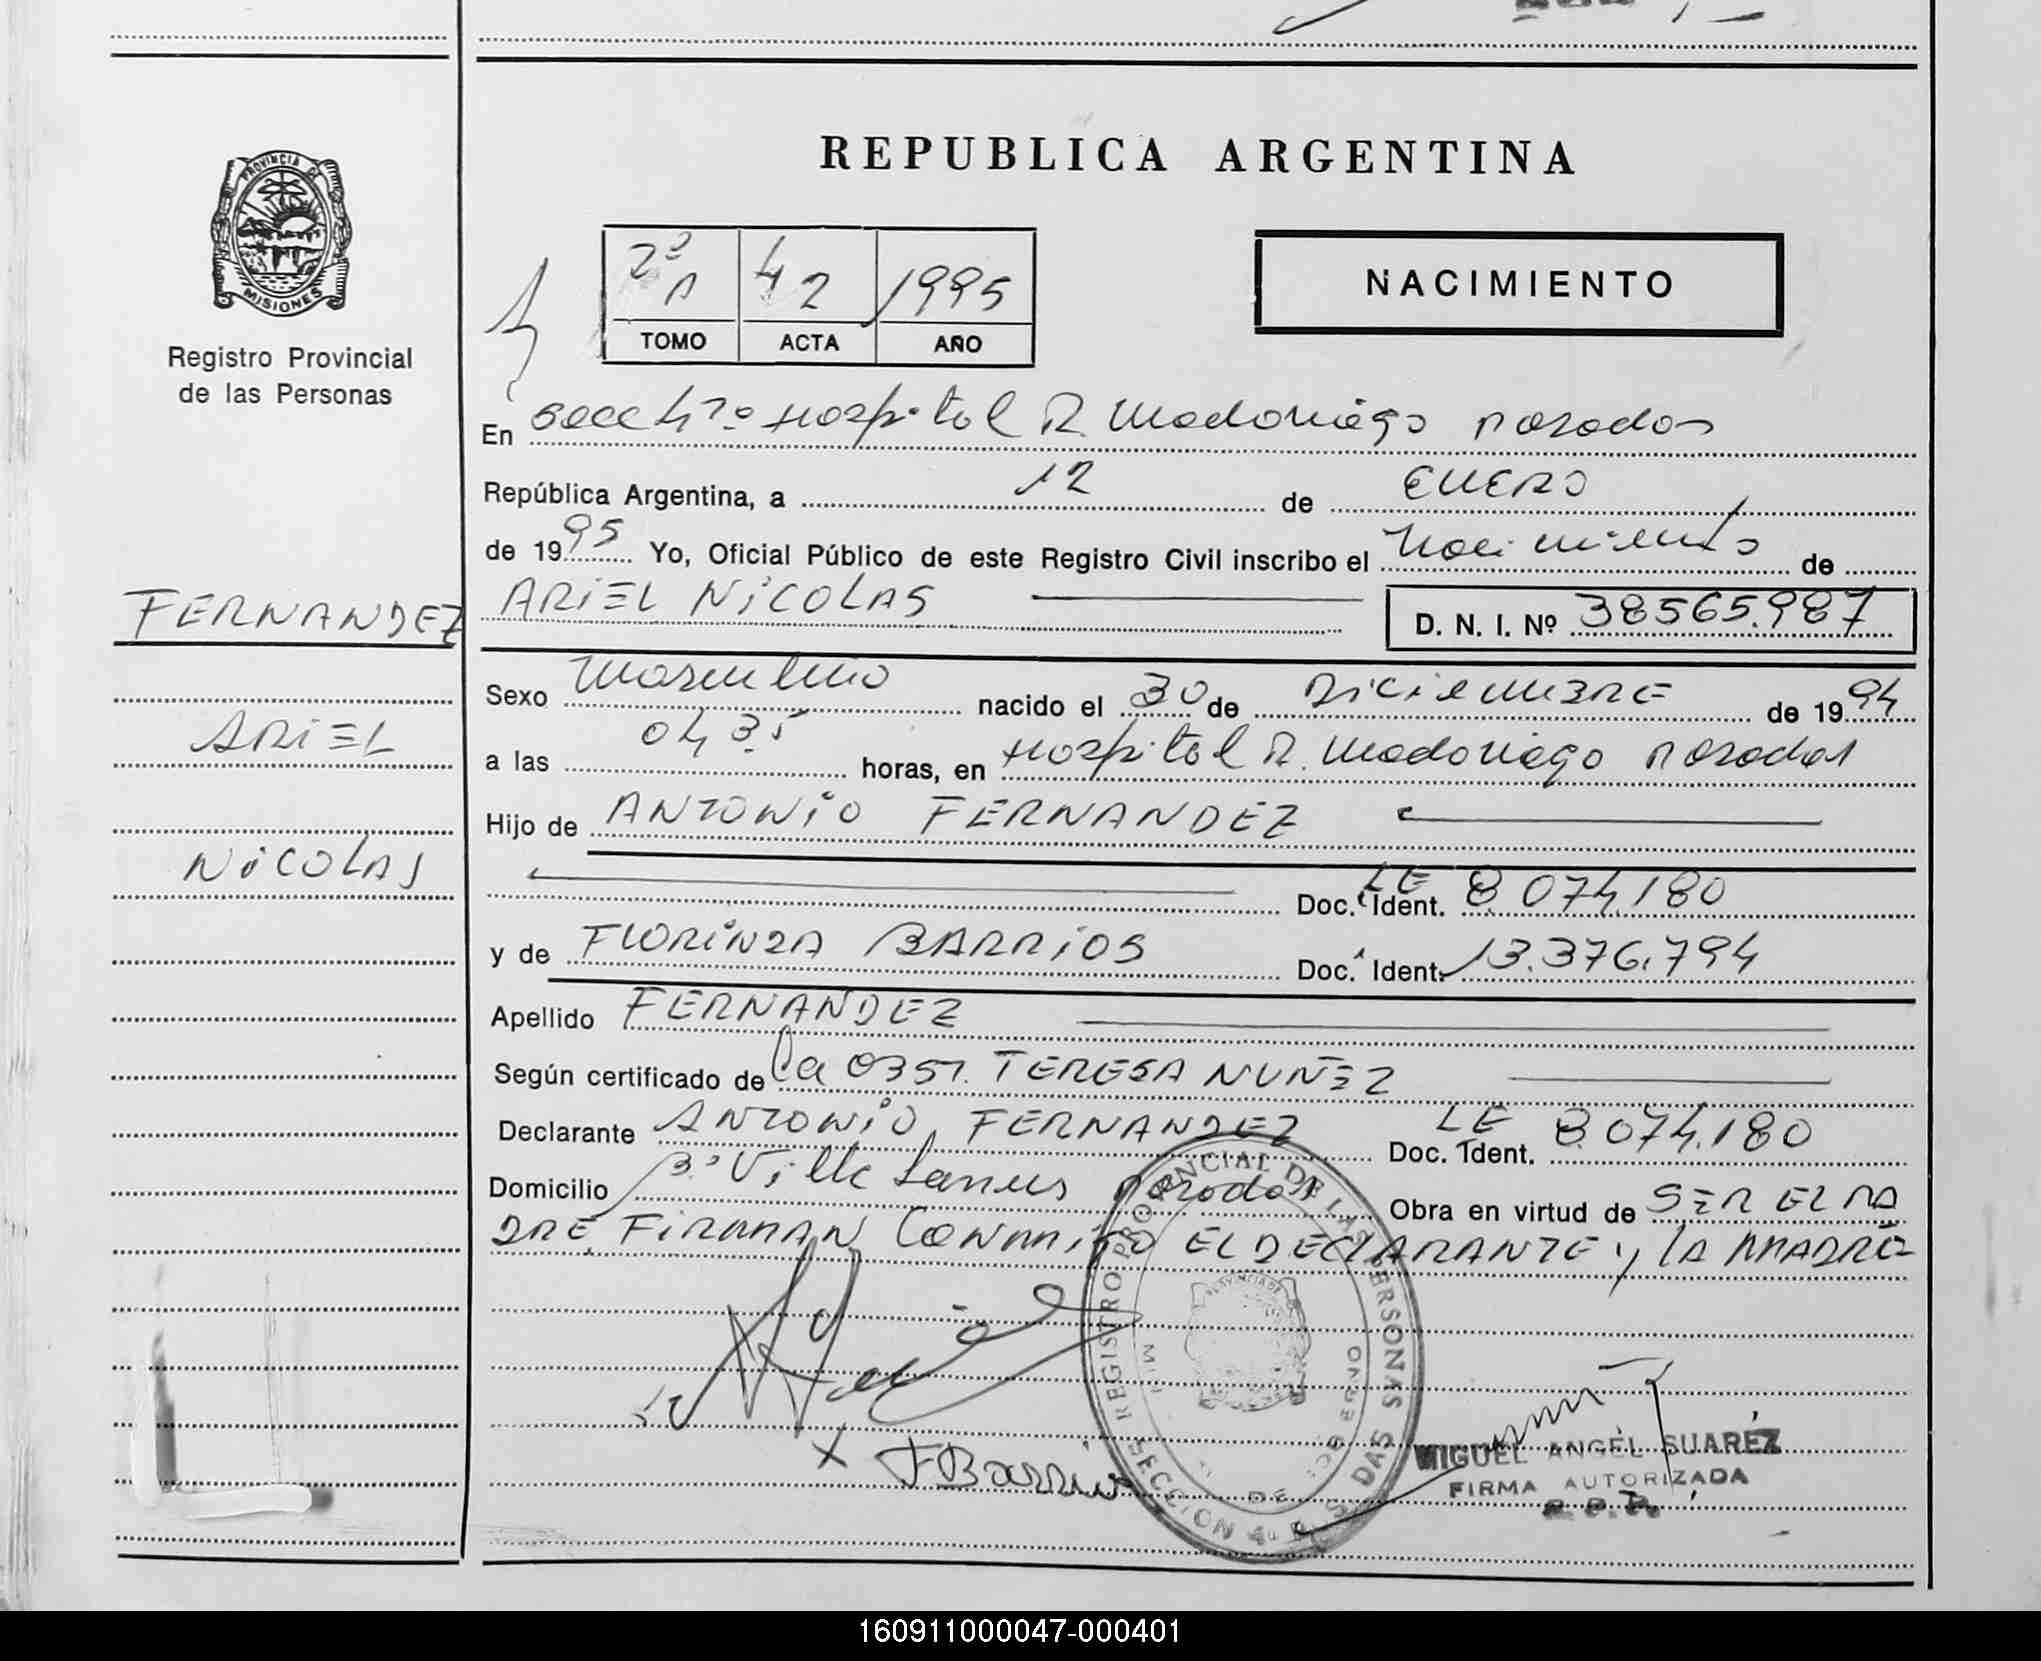 REPUBLICA ARGENTINA
PROVINCIA DE
MISIONES
Registro Provincial
de las Personas
2º A 42 1995
TOMO ACTA AÑO
NACIMIENTO
En Secc 4ta Hospital R. Madariaga Posadas
República Argentina, a 12 de ENERO
de 1995 Yo, Oficial Público de este Registro Civil inscribo el Nacimiento de
FERNANDEZ
ARIEL NICOLAS D. N. I. Nº 38565.987
Sexo Masculino nacido el 30 de DICIEMBRE de 1994
ARIEL
a las 04 35 horas, en Hospital R. Madariaga Posadas
Hijo de ANTONIO FERNANDEZ
NICOLAS
Doc. Ident. LE 8.074.180
y de FLORINDA BARRIOS Doc. Ident. 13.376.794
Apellido FERNANDEZ
Según certificado de la OBST. TERESA NUÑEZ
Declarante ANTONIO FERNANDEZ Doc. Ident. LE 8.074.180
Domicilio Bº Villa Lanus Posadas Obra en virtud de SER EL PA
DRE, FIRMAN CONMIGO EL DECLARANTE y LA MADRE
REGISTRO PROVINCIAL DE LAS PERSONAS
GOBIERNO
DE
SECCION 4ª
X FBarrios
MIGUEL ANGEL SUAREZ
FIRMA AUTORIZADA
160911000047-000401